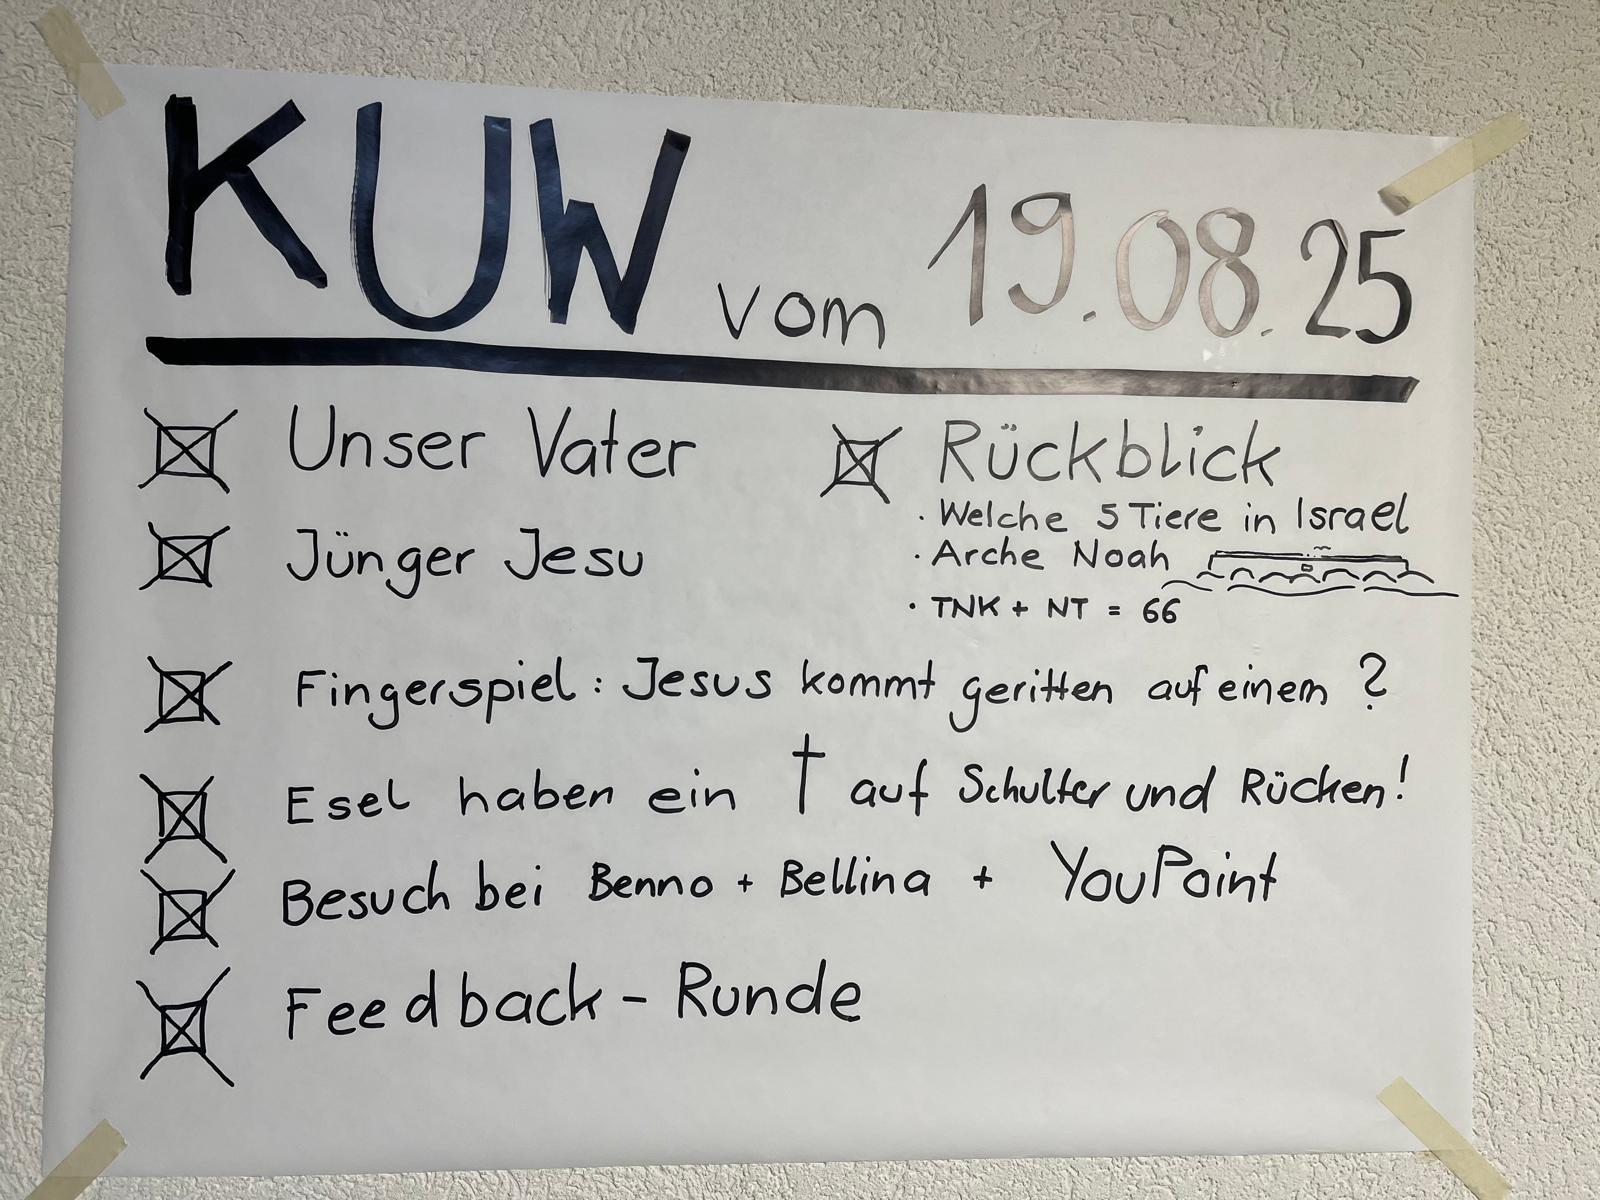 KUW vom 19.08.25
Unser Vater
Jünger Jesu
Rückblick
· Welche 5 Tiere in Israel
· Arche Noah
· TNK + NT = 66
Fingerspiel: Jesus kommt geritten auf einem ?
Esel haben ein † auf Schulter und Rücken!
Besuch bei Benno + Bellina + YouPoint
Feedback - Runde